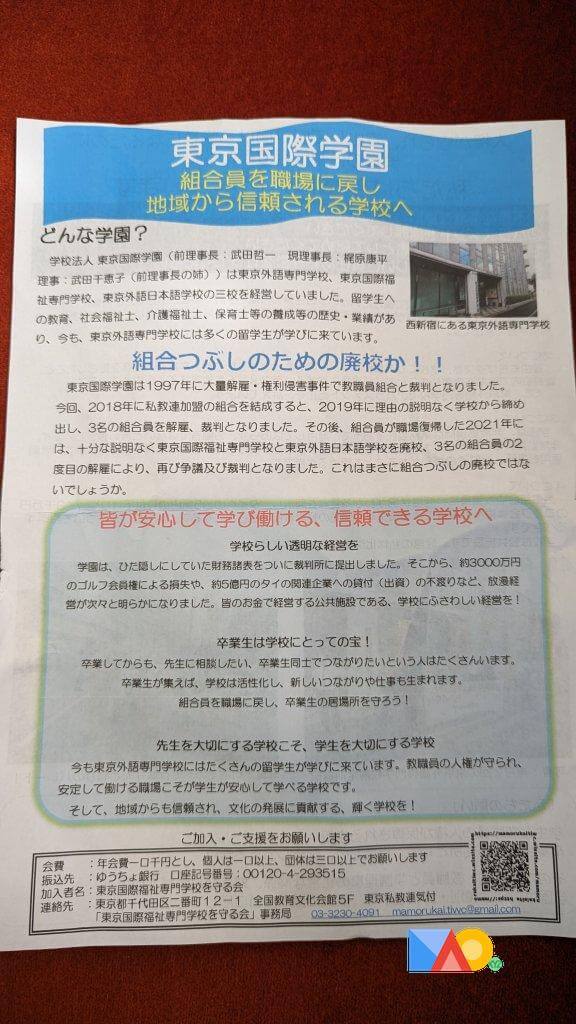 東京国際学園
組合員を職場に戻し
地域から信頼される学校へ
どんな学園？
学校法人 東京国際学園（前理事長：武田哲一　現理事長：梶原康平
理事：武田千恵子（前理事長の姉））は東京外語専門学校、東京国際福
祉専門学校、東京外語日本語学校の三校を経営していました。留学生へ
の教育、社会福祉士、介護福祉士、保育士等の養成等の歴史・業績があ
り、今も、東京外語専門学校には多くの留学生が学びに来ています。
西新宿にある東京外語専門学校
組合つぶしのための廃校か！！
東京国際学園は1997年に大量解雇・権利侵害事件で教職員組合と裁判となりました。
今回、2018年に私教連加盟の組合を結成すると、2019年に理由の説明なく学校から締め
出し、3名の組合員を解雇、裁判となりました。その後、組合員が職場復帰した2021年に
は、十分な説明なく東京国際福祉専門学校と東京外語日本語学校を廃校、3名の組合員の2
度目の解雇により、再び争議及び裁判となりました。これはまさに組合つぶしの廃校ではな
いでしょうか。
皆が安心して学び働ける、信頼できる学校へ
学校らしい透明な経営を
学園は、ひた隠しにしていた財務諸表をついに裁判所に提出しました。そこから、約3000万円
のゴルフ会員権による損失や、約5億円のタイの関連企業への貸付（出資）の不渡りなど、放漫経
営が次々と明らかになりました。皆のお金で経営する公共施設である、学校にふさわしい経営を！
卒業生は学校にとっての宝！
卒業してからも、先生に相談したい、卒業生同士でつながりたいという人はたくさんいます。
卒業生が集えば、学校は活性化し、新しいつながりや仕事も生まれます。
組合員を職場に戻し、卒業生の居場所を守ろう！
先生を大切にする学校こそ、学生を大切にする学校
今も東京外語専門学校にはたくさんの留学生が学びに来ています。教職員の人権が守られ、
安定して働ける職場こそが学生が安心して学べる学校です。
そして、地域からも信頼され、文化の発展に貢献する、輝く学校を！
ご加入・ご支援をお願いします
会費　：年会費一口千円とし、個人は一口以上、団体は三口以上でお願いします
振込先　：ゆうちょ銀行　口座記号番号：00120-4-293515
加入者名：東京国際福祉専門学校を守る会
連絡先　：東京都千代田区二番町１２－１　全国教育文化会館５Ｆ　東京私教連気付
「東京国際福祉専門学校を守る会」事務局　03-3230-4091　mamorukai.tiwc@gmail.com